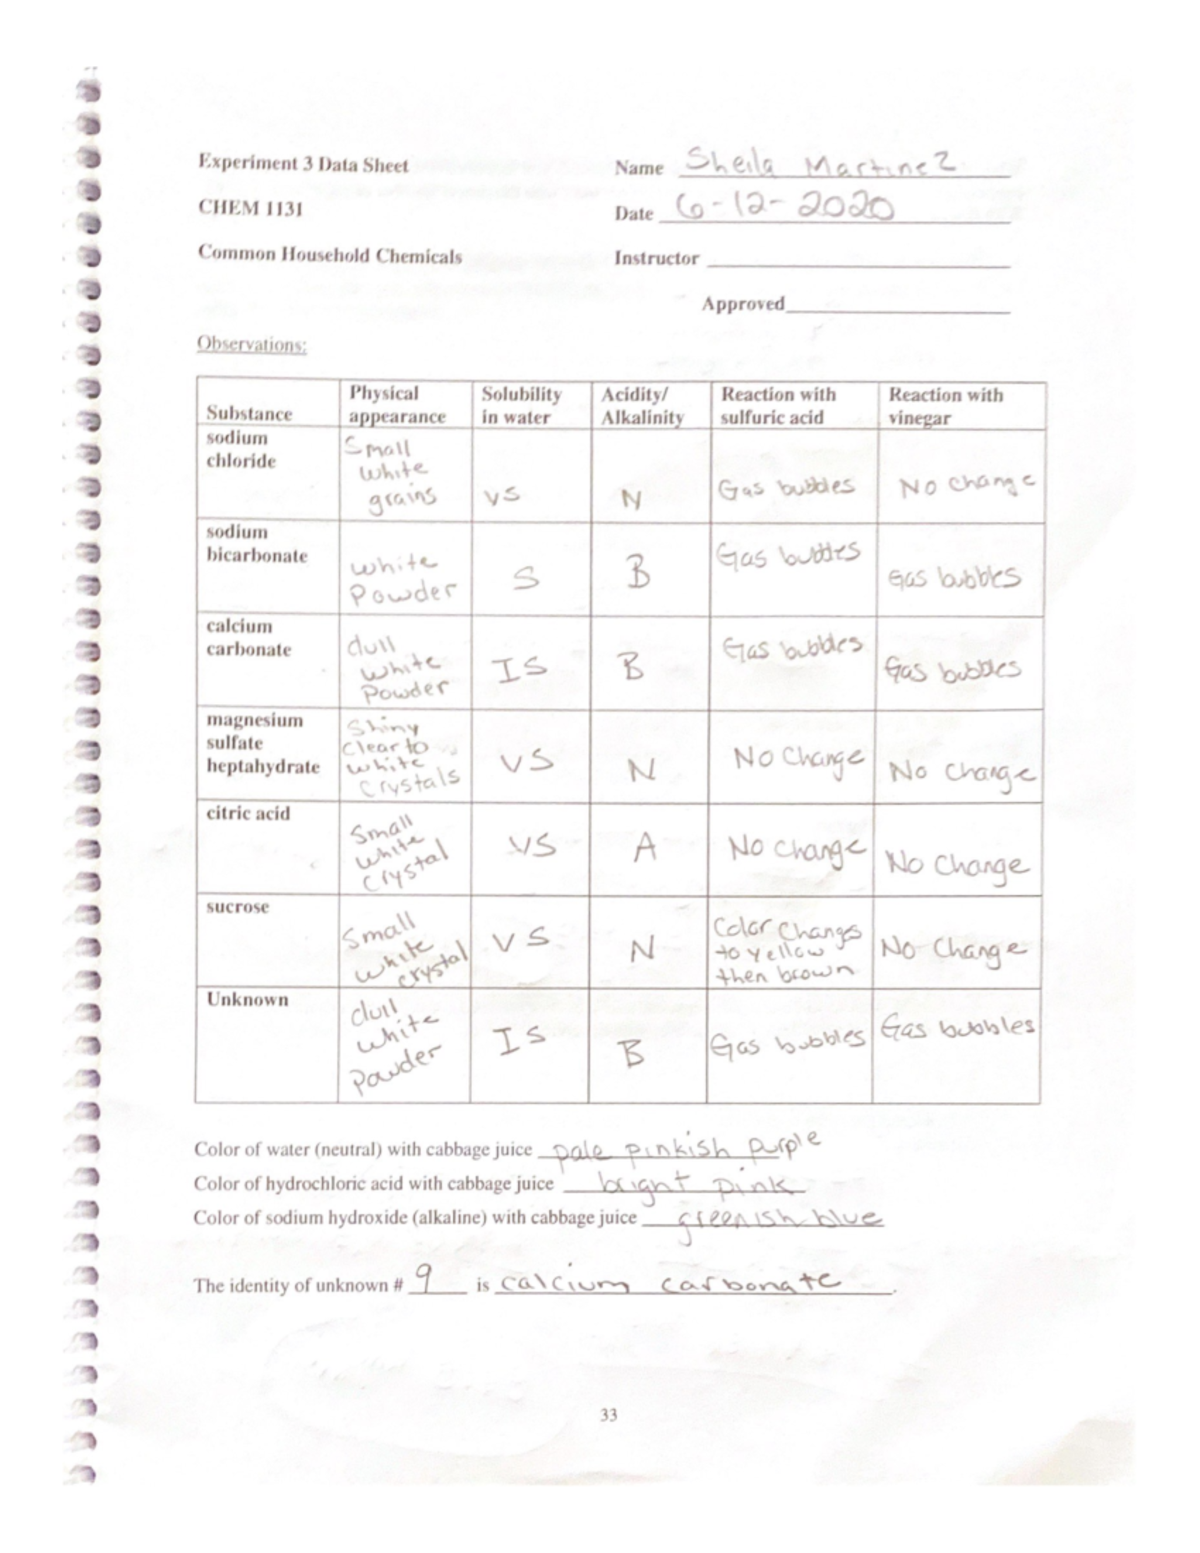 Experiment 3 Data Sheet
Name Sheila Martinez
CHEM 1131
Date 6-12-2020
Common Household Chemicals
Instructor
Approved
Observations:
Substance | Physical appearance | Solubility in water | Acidity/ Alkalinity | Reaction with sulfuric acid | Reaction with vinegar
sodium chloride | Small white grains | VS | N | Gas bubbles | No change
sodium bicarbonate | white Powder | S | B | Gas bubbles | Gas bubbles
calcium carbonate | dull white Powder | IS | B | Gas bubbles | Gas bubbles
magnesium sulfate heptahydrate | Shiny Clear to white Crystals | VS | N | No Change | No Change
citric acid | Small white Crystal | VS | A | No Change | No Change
sucrose | Small white crystal | VS | N | Color Changes to yellow then brown | No Change
Unknown | dull white Powder | IS | B | Gas bubbles | Gas bubbles
Color of water (neutral) with cabbage juice pale pinkish purple
Color of hydrochloric acid with cabbage juice bright pink
Color of sodium hydroxide (alkaline) with cabbage juice greenish blue
The identity of unknown # 9 is calcium carbonate.
33